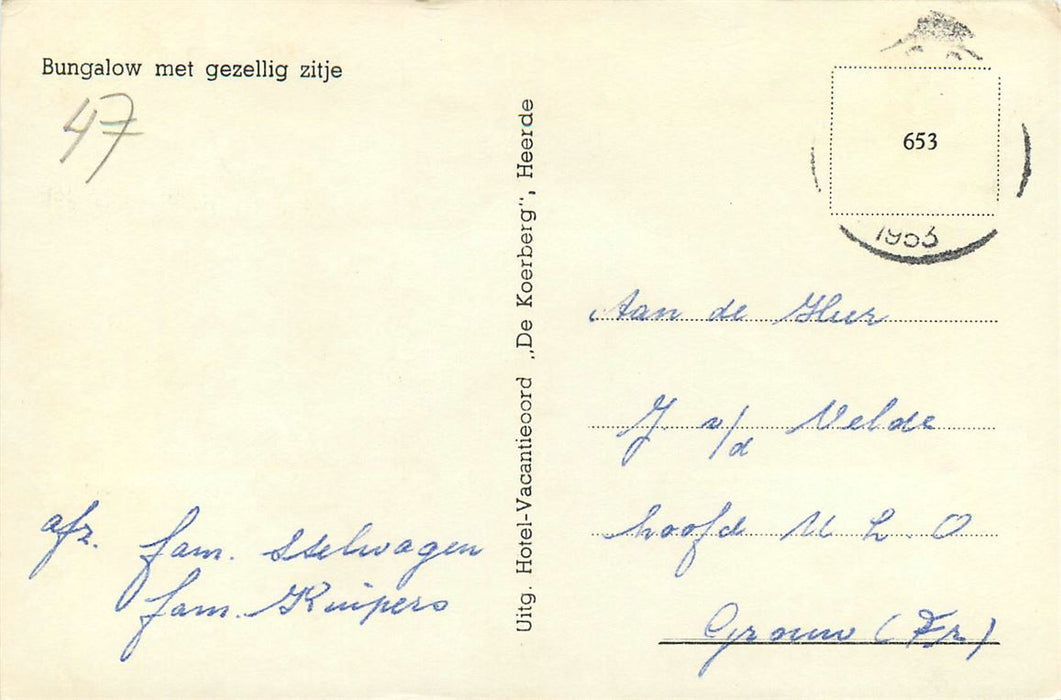 Bungalow met gezellig zitje
47
653
1953
Uitg. Hotel-Vacantieoord „De Koerberg", Heerde
Aan de Heer
J v/d Velde
hoofd U L O
Grouw (Fr)
afz. fam. Stelwagen
fam. Kuipers